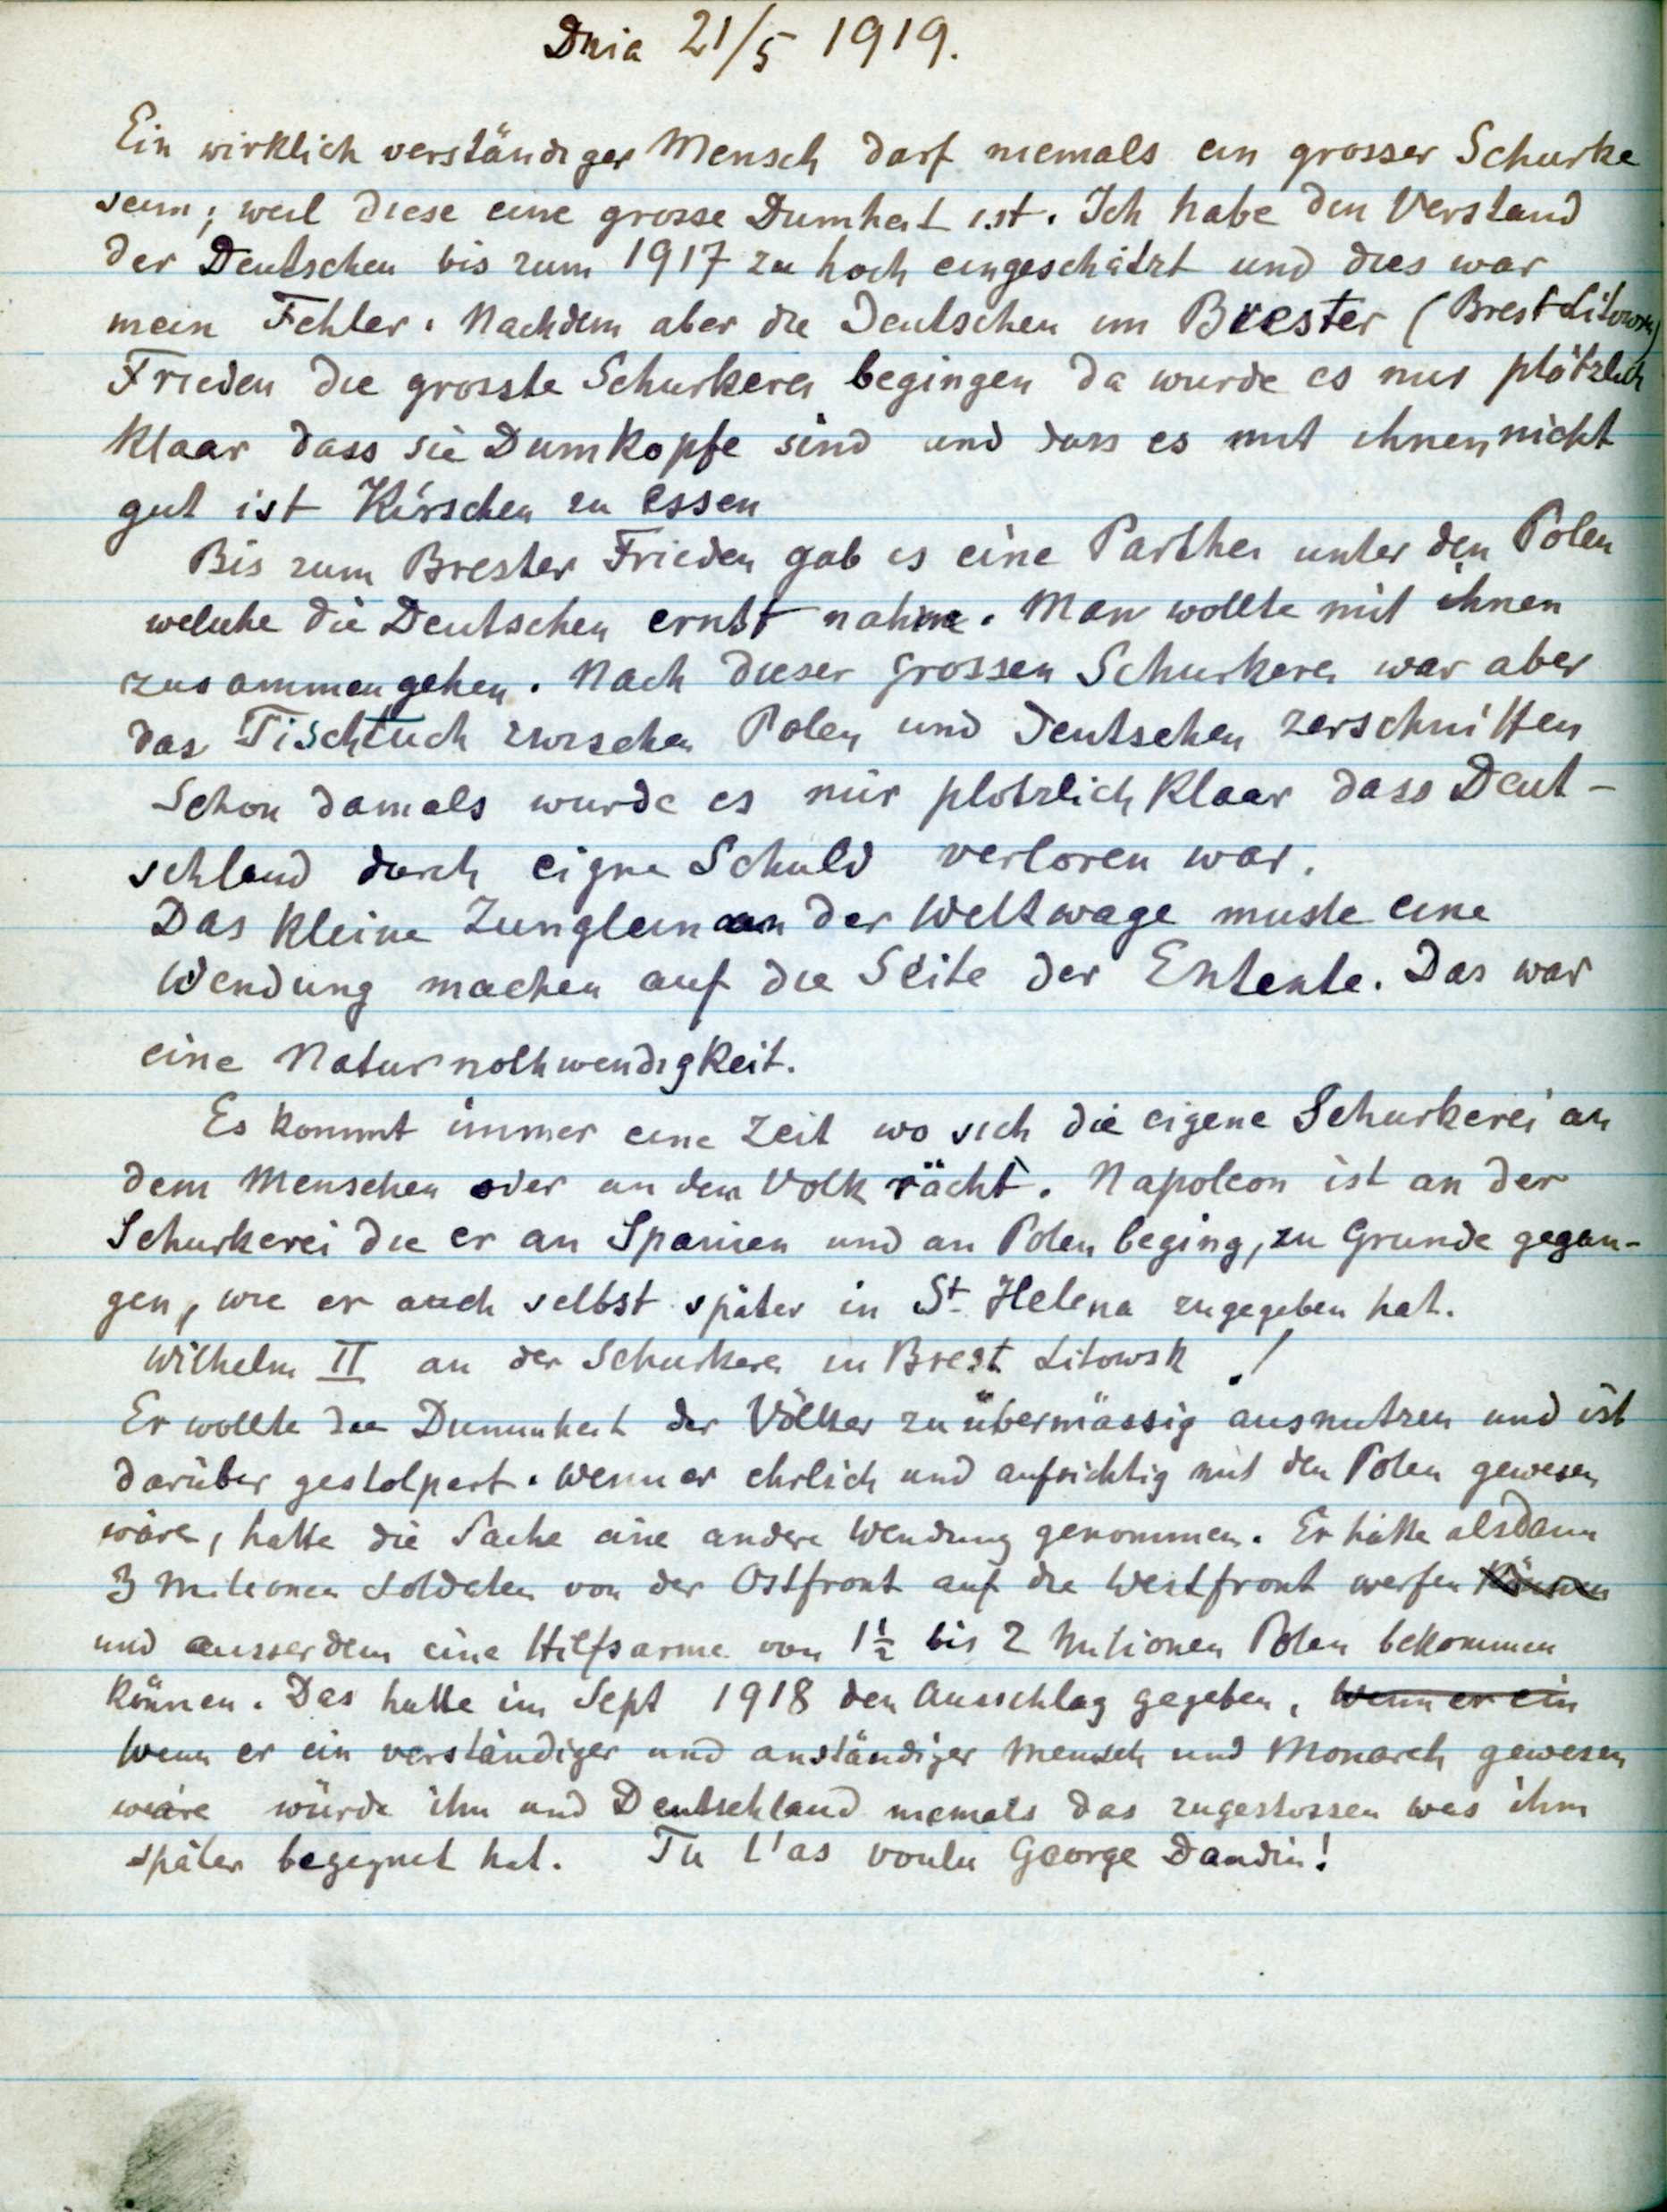 Dnia 21/5 1919.
Ein wirklich verständiger Mensch darf niemals ein grosser Schurke
sein; weil diese eine grosse Dumheit ist. Ich habe den Verstand
der Deutschen bis zum 1917 zu hoch eingeschätzt und dies war
mein Fehler. Nachdem aber die Deutschen im Brester (Brest-Litowsk)
Frieden die grosste Schurkerei begingen da wurde es mir plötzlich
klaar dass sie Dumkopfe sind und dass es mit ihnen nicht
gut ist Kirschen zu essen
Bis zum Brester Frieden gab es eine Parthei unter den Polen
weluhe die Deutschen ernst nahm. Man wollte mit ihnen
zusammengehen. Nach dieser grossen Schurkerei war aber
das Tischtuch zwischen Polen und Deutschen zerschnitten
Schon damals wurde es mir plotzlich klaar dass Deut-
schland durch eigne Schuld verloren war.
Das kleine Zunglein an der Weltwage muste eine
Wendung machen auf die Seite der Entente. Das war
eine Naturnothwendigkeit.
Es kommt immer eine Zeit wo sich die eigene Schurkerei an
dem Menschen oder an dem Volk rächt. Napoleon ist an der
Schurkerei die er an Spanien und an Polen beging, zu Grunde gegan-
gen, wie er auch selbst später in St. Helena zugegeben hat.
Wilhelm II an der Schurkerei in Brest Litowsk !
Er wollte die Dummheit der Völker zu übermässig ausnutzen und ist
darüber gestolpert. Wenn er ehrlich und aufrichtig mit den Polen gewesen
wäre, hatte die Sache eine andere Wendung genommen. Er hätte alsdann
3 Milionen Soldaten von der Ostfront auf die Westfront werfen können
und ausserdem eine Hilfsarme von 1½ bis 2 Milionen Polen bekommen
können. Das hatte im Sept 1918 den Ausschlag gegeben, Wenn er ein
Wenn er ein verständiger und anständiger Mensch und Monarch gewesen
wäre würde ihm und Deutschland niemals das zugestossen was ihm
später begegnet hat. Tu l'as voulu George Dandin!